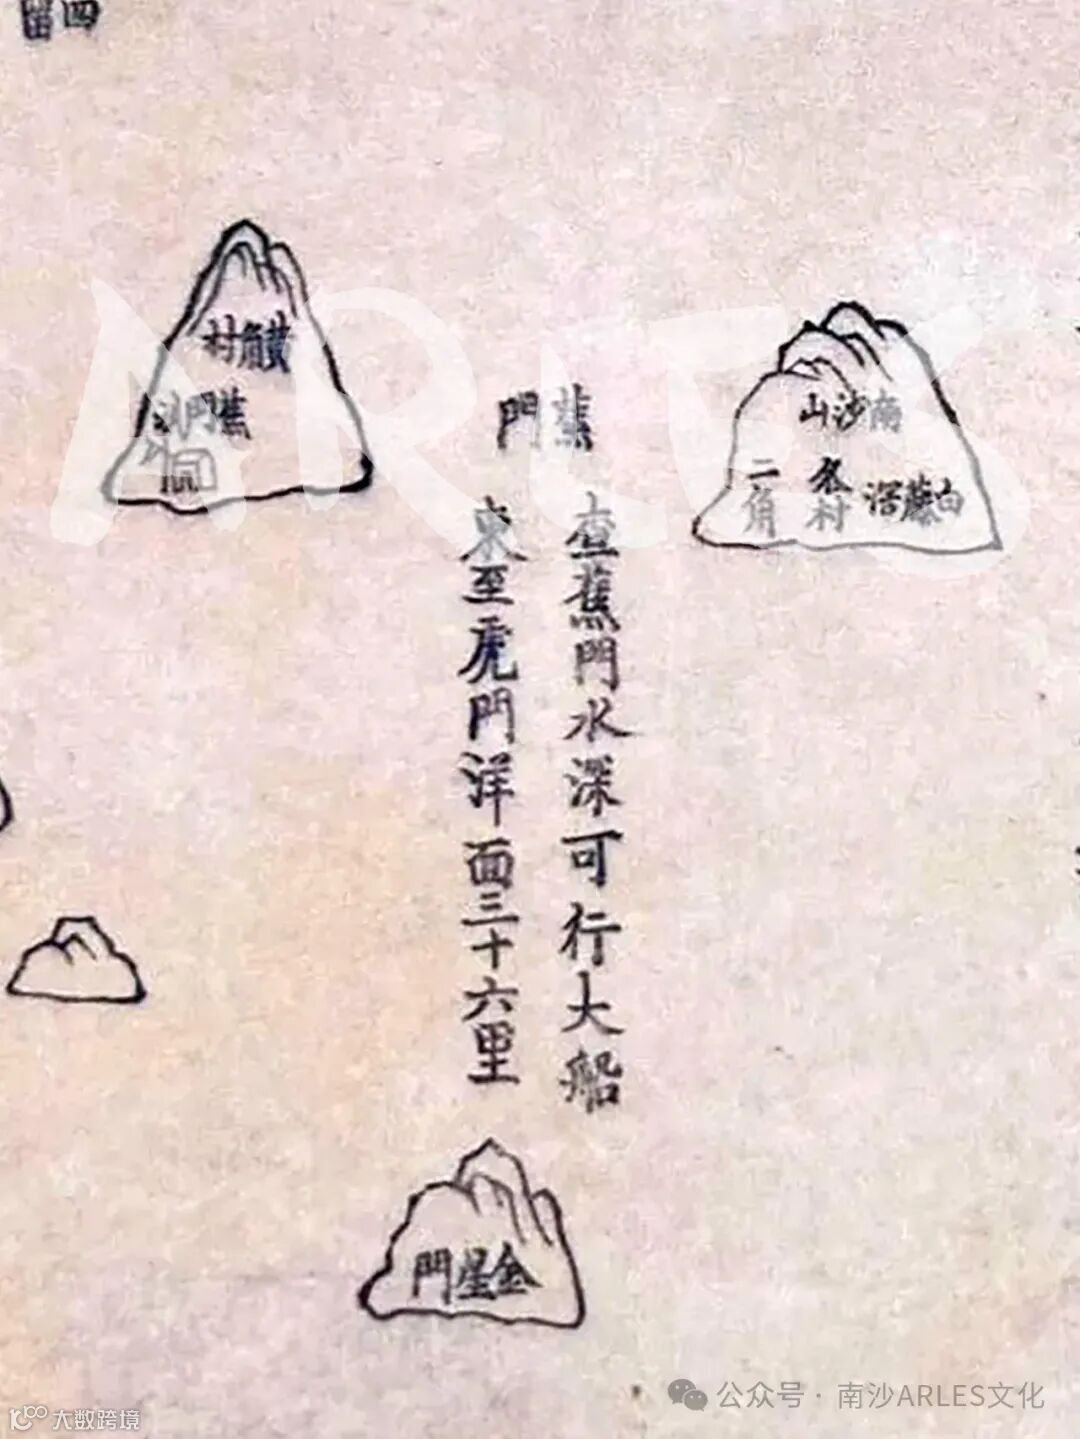 四
留
黃角村
蕉門汛
蕉門
查蕉門水深可行大船
東至虎門洋面三十六里
南沙山
白藤滘
村
二角
金星門
ARLES
公众号 · 南沙ARLES文化
大数跨境